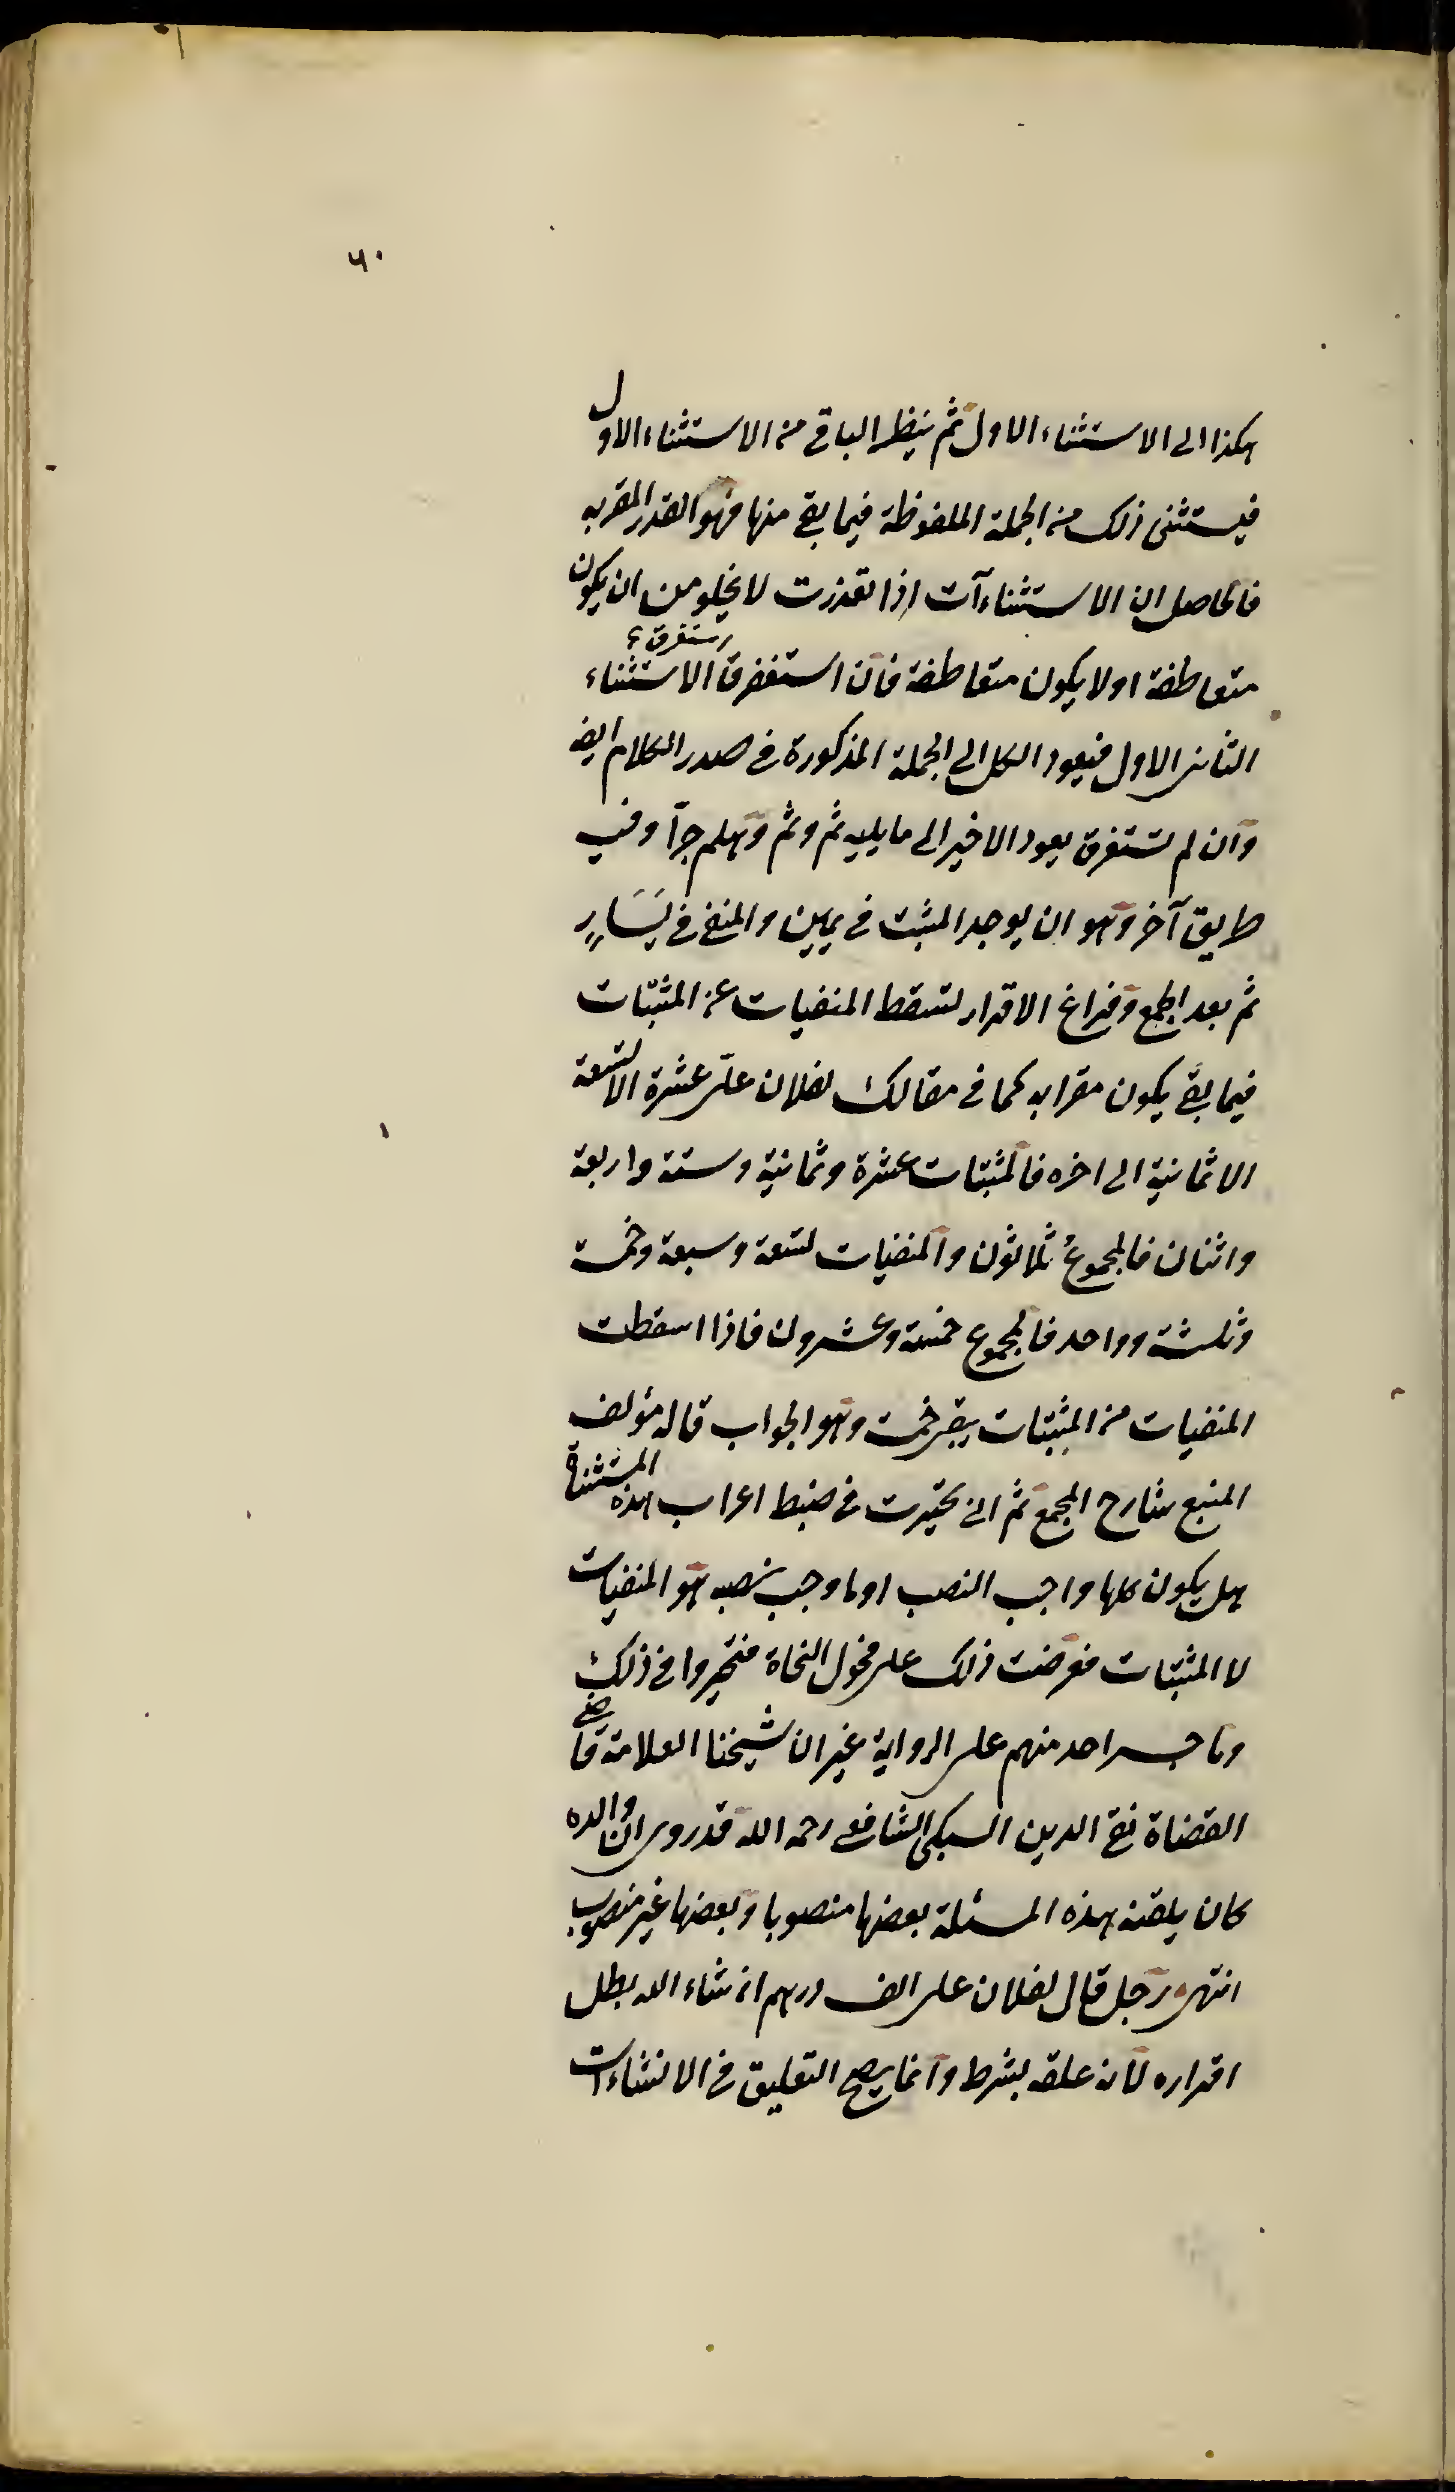 ٦٠
هكذا الى الاستثناء الاول ثم ينظر الباقي من الاستثناء الاول
فيستثنى ذلك من الجملة الملفوظة فيما بقى منها فهو القدر المقر به
فالحاصل ان الاستثناءآت اذا تعددت لا يخلو من ان يكون
متعاطفة او لا يكون متعاطفة فان استغفرق الاستثناء
الثانى الاول فيعود الكل الى الجملة المذكورة في صدر الكلام ايضا
وان لم تستغرق يعود الاخير الى ما يليه ثم وثم وهلم جرآ وفيه
طريق آخر وهو ان يوجد المثبت في يمين والمنفي في يَسَارٍ
ثم بعد الجمع وفراغ الاقرار تسقط المنفيات عن المثبتات
فيما بقى يكون مقرا به كما في مقالك لفلان علىّ عشرة الا تسعة
الا ثمانية الى اخره فالمثبتات عشرة وثمانية وستة واربعة
واثنان فالمجموعُ ثلاثون والمنفيات تسعة وسبعة وخمسة
وثلثة وواحد فالمجموع خمسة وعشرون فاذا اسقطت
المنفيات من المثبتات يبقى خمسة وهو الجواب قاله مؤلف
المنبع شارح المجمع ثم انى تحيرت في ضبط اعراب هذه المستثناة
هل يكون كلها واجب النصب او ما وجب نصبه هو المنفيات
لا المثبتات فعرضت ذلك على فحول النحاة فتحيروا في ذلك
وما جسر احد منهم على الرواية غير ان شيخنا العلامة قاضى
القضاة تقى الدين السبكى الشافعى رحمه الله قد روى ان والده
كان يلقنه هذه المسئلة بعضها منصوبا وبعضها غير منصوب
انتهى رجل قال لفلان على الف درهم ان شاء الله بطل
اقراره لانه علقه بشرط وانما يصح التعليق في الانشاءات